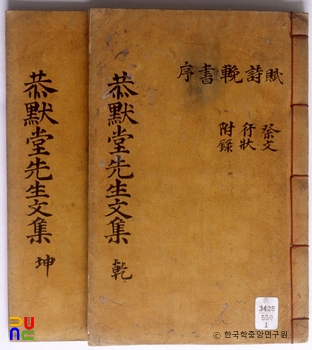 賦詩輓書序
祭文
行狀
附錄
恭默堂先生文集 乾
恭默堂先生文集 坤
3428
550
1
ⓒ 한국학중앙연구원